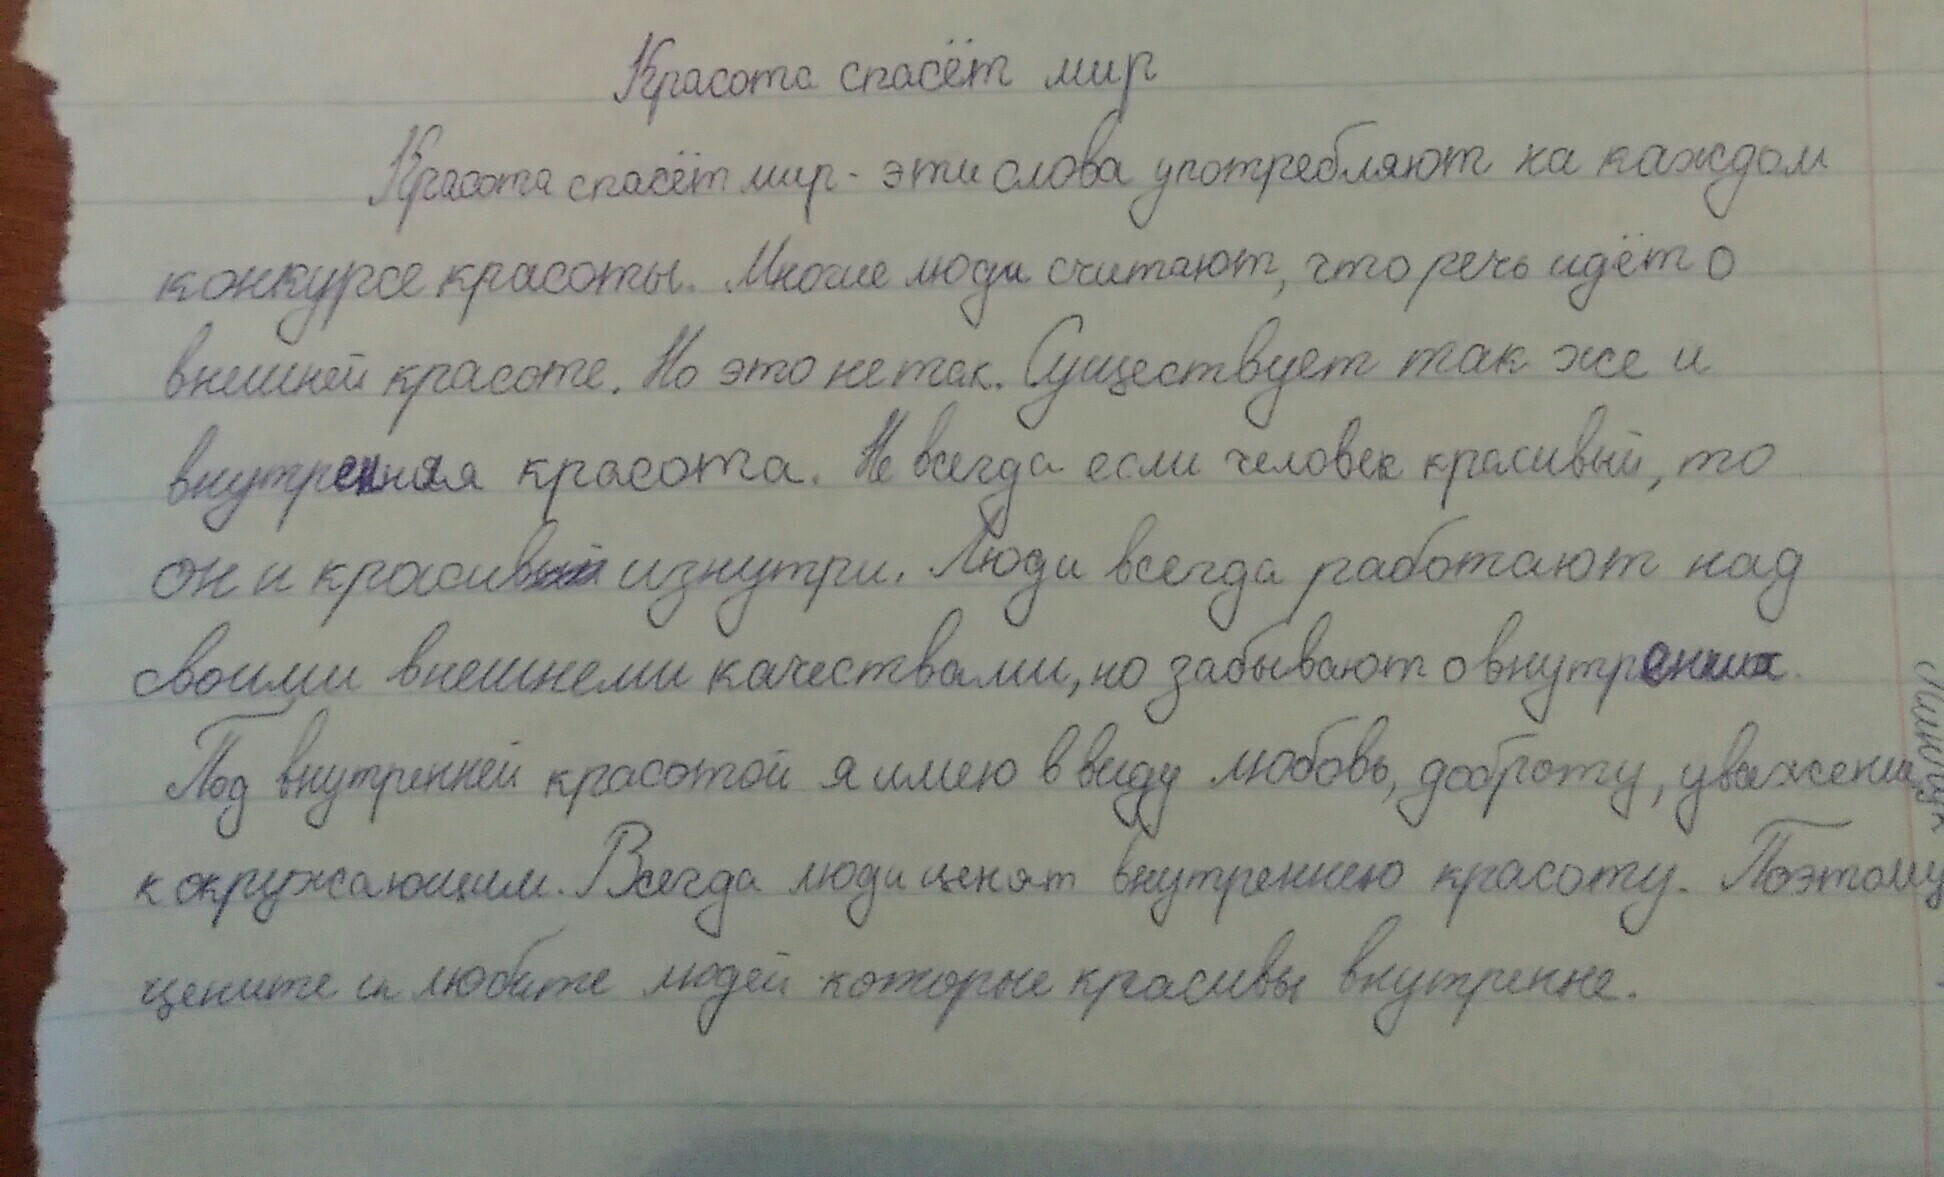 Красота спасёт мир
Красота спасёт мир - эти слова употребляют на каждом
конкурсе красоты. Многие люди считают, что речь идёт о
внешней красоте. Но это не так. Существует так же и
внутренняя красота. Не всегда если человек красивый, то
он и красивый изнутри. Люди всегда работают над
своими внешнеми качествами, но забывают о внутренних.
Под внутренней красотой я имею в виду любовь, доброту, уважение
к окружающим. Всегда люди ценят внутреннею красоту. Поэтому
цените и любите людей которые красивы внутренне.